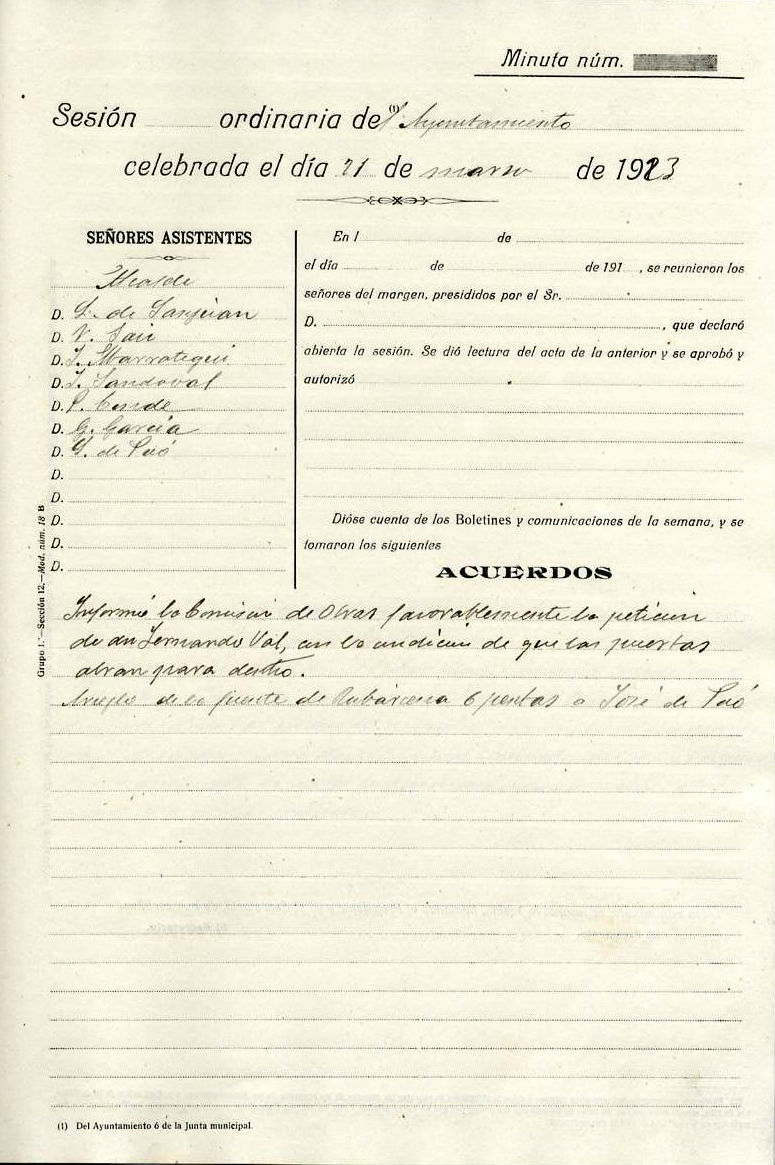 Minuta núm.
Sesión ordinaria de (1) Ayuntamiento
celebrada el día 21 de marzo de 1923
SEÑORES ASISTENTES
Alcalde
D. L. de Sanjuan
D. V. Sair
D. I. Ibarrategui
D. I. Sandoval
D. P. Conde
D. G. García
D. G. de Puó
D.
D.
D.
D.
D.
En l de
el día de de 191 , se reunieron los
señores del margen, presididos por el Sr.
D. , que declaró
abierta la sesión. Se dió lectura del acta de la anterior y se aprobó y
autorizó
Dióse cuenta de los Boletines y comunicaciones de la semana, y se
tomaron los siguientes
ACUERDOS
Informó la Comisión de Obras favorablemente la petición
de dn Fernando Val, con la condición de que las puertas
abran para dentro.
Arreglo de la fuente de Rubárcena 6 pesetas a José de Puó
Grupo 1.º—Sección 12.—Mod. núm. 18 B
(1) Del Ayuntamiento ó de la Junta municipal.